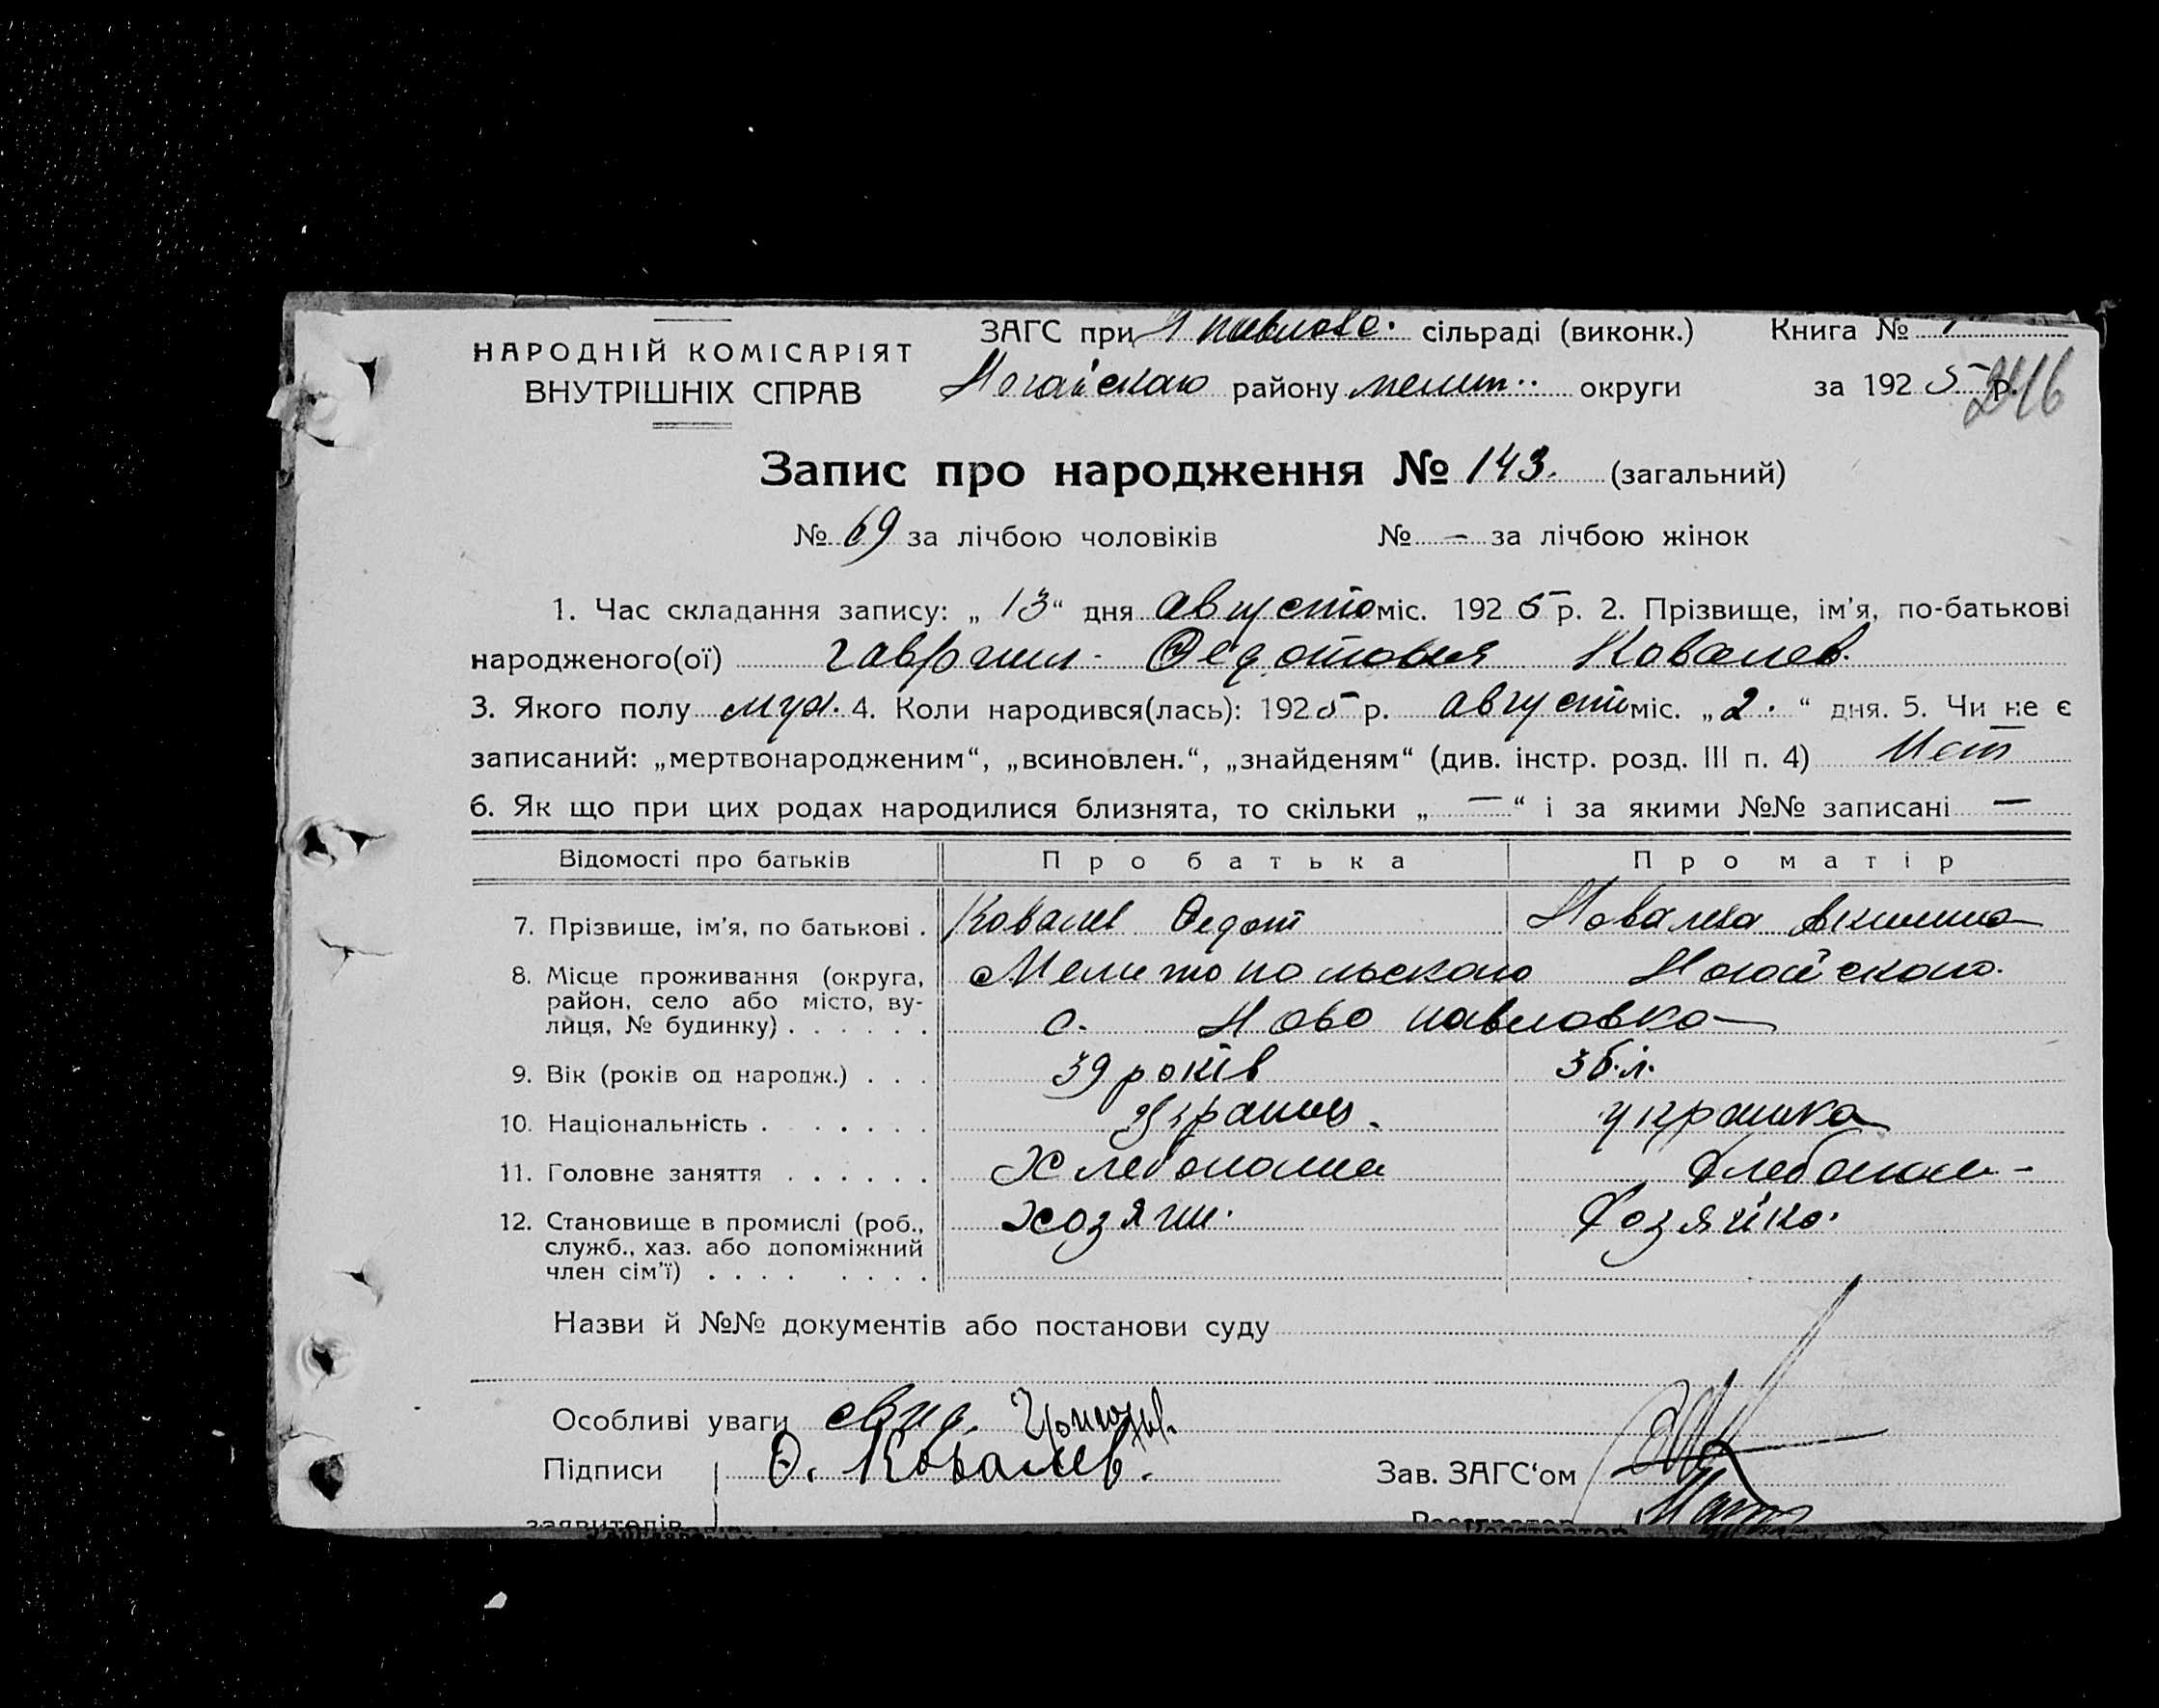 НАРОДНІЙ КОМІСАРІЯТ
ВНУТРІШНІХ СПРАВ
ЗАГС при сільраді (виконк.) Книга №
Ногайского району мелит. округи за 1925 р.
246
Запис про народження № 143. (загальний)
№ 69 за лічбою чоловіків № — за лічбою жінок
1. Час складання запису: „13“ дня августа міс. 1925 р. 2. Прізвище, ім'я, по-батькові
народженого(ої) Гавриил Федотовия Ковалев.
3. Якого полу муж. 4. Коли народився(лась): 1925 р. август міс. „2.“ дня. 5. Чи не є
записаний: „мертвонародженим“, „всиновлен.“, „знайденям“ (див. інстр. розд. III п. 4) Нет
6. Як що при цих родах народилися близнята, то скільки „—“ і за якими №№ записані —
Відомості про батьків Про батька Про матір
7. Прізвище, ім'я, по батькові . Ковалев Федот Ковалева Акилина
8. Місце проживання (округа, Мелитопольского Ногайского.
район, село або місто, ву-
лиця, № будинку) . . . . . . с. Ново павловка
9. Вік (років од народж.) . . . 39 років 36.л.
10. Національність . . . . . . . Украинец. украинка
11. Головне заняття . . . . . . Хлебопашец Хлебопаш-
12. Становище в промислі (роб., хозяин. Хозяйка.
служб., хаз. або допоміжний
член сім'ї) . . . . . . . .
Назви й №№ документів або постанови суду
Особливі уваги свид.
Підписи Ф. Ковалев. Зав. ЗАГС'ом
заявителів Реєстратор